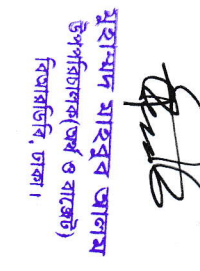 মুহাম্মদ মাহবুব আলম
উপপরিচালক(অর্থ ও বাজেট)
বিআরডিবি, ঢাকা।